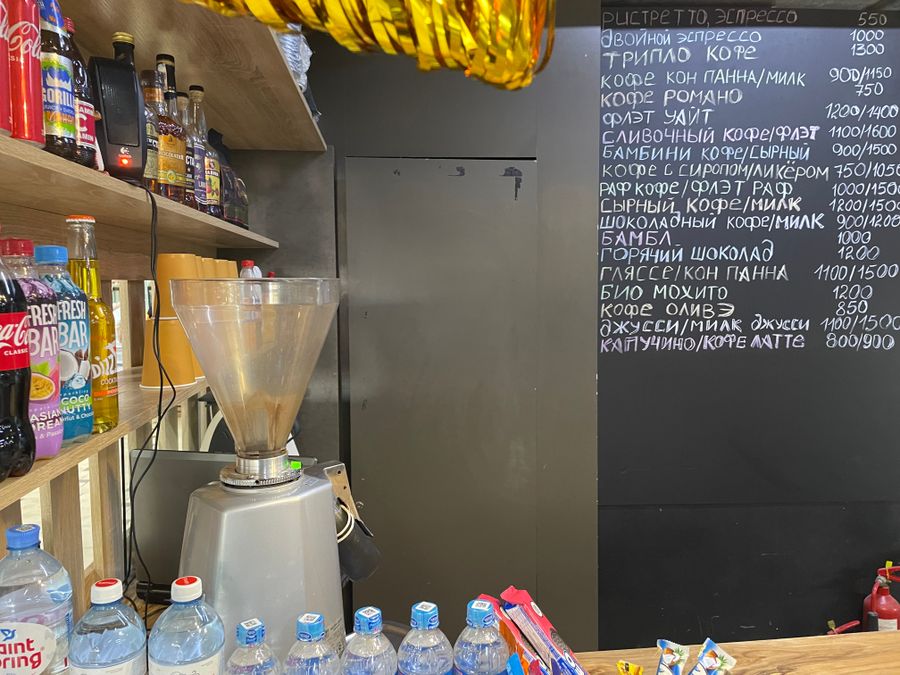 РИСТРЕТТО, ЭСПРЕССО 550
ДВОЙНОЙ ЭСПРЕССО 1000
ТРИПЛО КОФЕ 1300
КОФЕ КОН ПАННА/МИЛК 900/1150
КОФЕ РОМАНО 750
ФЛЭТ УАЙТ 1200/1400
СЛИВОЧНЫЙ КОФЕ/ФЛЭТ 1100/1600
БАМБИНИ КОФЕ/СЫРНЫЙ 900/1500
КОФЕ С СИРОПОМ/ЛИКЁРОМ 750/1050
РАФ КОФЕ/ФЛЭТ РАФ 1000/1500
СЫРНЫЙ КОФЕ/МИЛК 1200/1500
ШОКОЛАДНЫЙ КОФЕ/МИЛК 900/1200
БАМБЛ 1000
ГОРЯЧИЙ ШОКОЛАД 1200
ГЛЯССЕ/КОН ПАННА 1100/1500
БИО МОХИТО 1200
КОФЕ ОЛИВЭ 850
ДЖУССИ/МИЛК ДЖУССИ 1100/1500
КАПУЧИНО/КОФЕ ЛАТТЕ 800/900
GORILL
FRESH
BAR
FRESH
BAR
COCO
NUTTY
ASIAN
DREA
Coca-Co
CLASSIC
DIZZ
COCKT
aint
pring